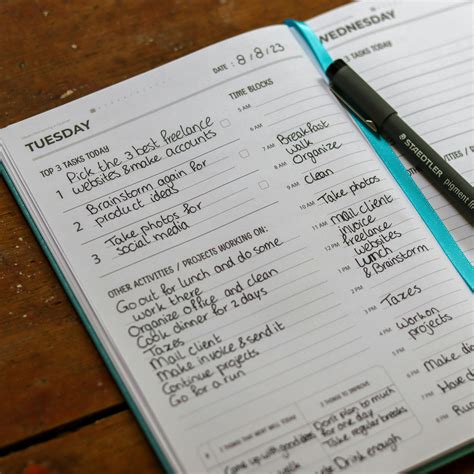 DATE : 8/8/23
TUESDAY
TOP 3 TASKS TODAY
1 Pick the 3 best freelance
websites & make accounts
2 Brainstorm again for
product ideas
3 Take photos for
social media
OTHER ACTIVITIES / PROJECTS WORKING ON:
Go out for lunch and do some
work there
Organize office and clean
Cook dinner for 2 days
Taxes
Mail client
make invoice & send it
Continue projects
Go for a run
3 THINGS THAT WENT WELL TODAY
Come up with good
3 THINGS TO IMPROVE
Don't plan too much
for one day
Take regular breaks
TIME BLOCKS
6 AM
7 AM Breakfast
walk
8 AM Organize
9 AM Clean
10 AM Take photos
11 AM mail client
invoice
12 PM freelance
websites
1 PM lunch
2 PM & Brainstorm
3 PM
4 PM Taxes
5 PM Work on
projects
6 PM
7 PM Take
8 PM
Running
WEDNESDAY
TOP 3 TASKS TODAY
1
STAEDTLER
pigment
Have